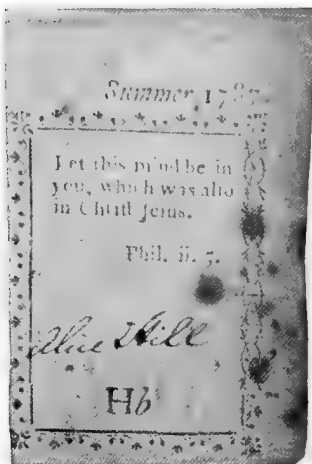 Summer, 178
Let this mind be in
you, which was also
in Christ Jesus.
Phil. ii. 5.
Alice Hill
Hb